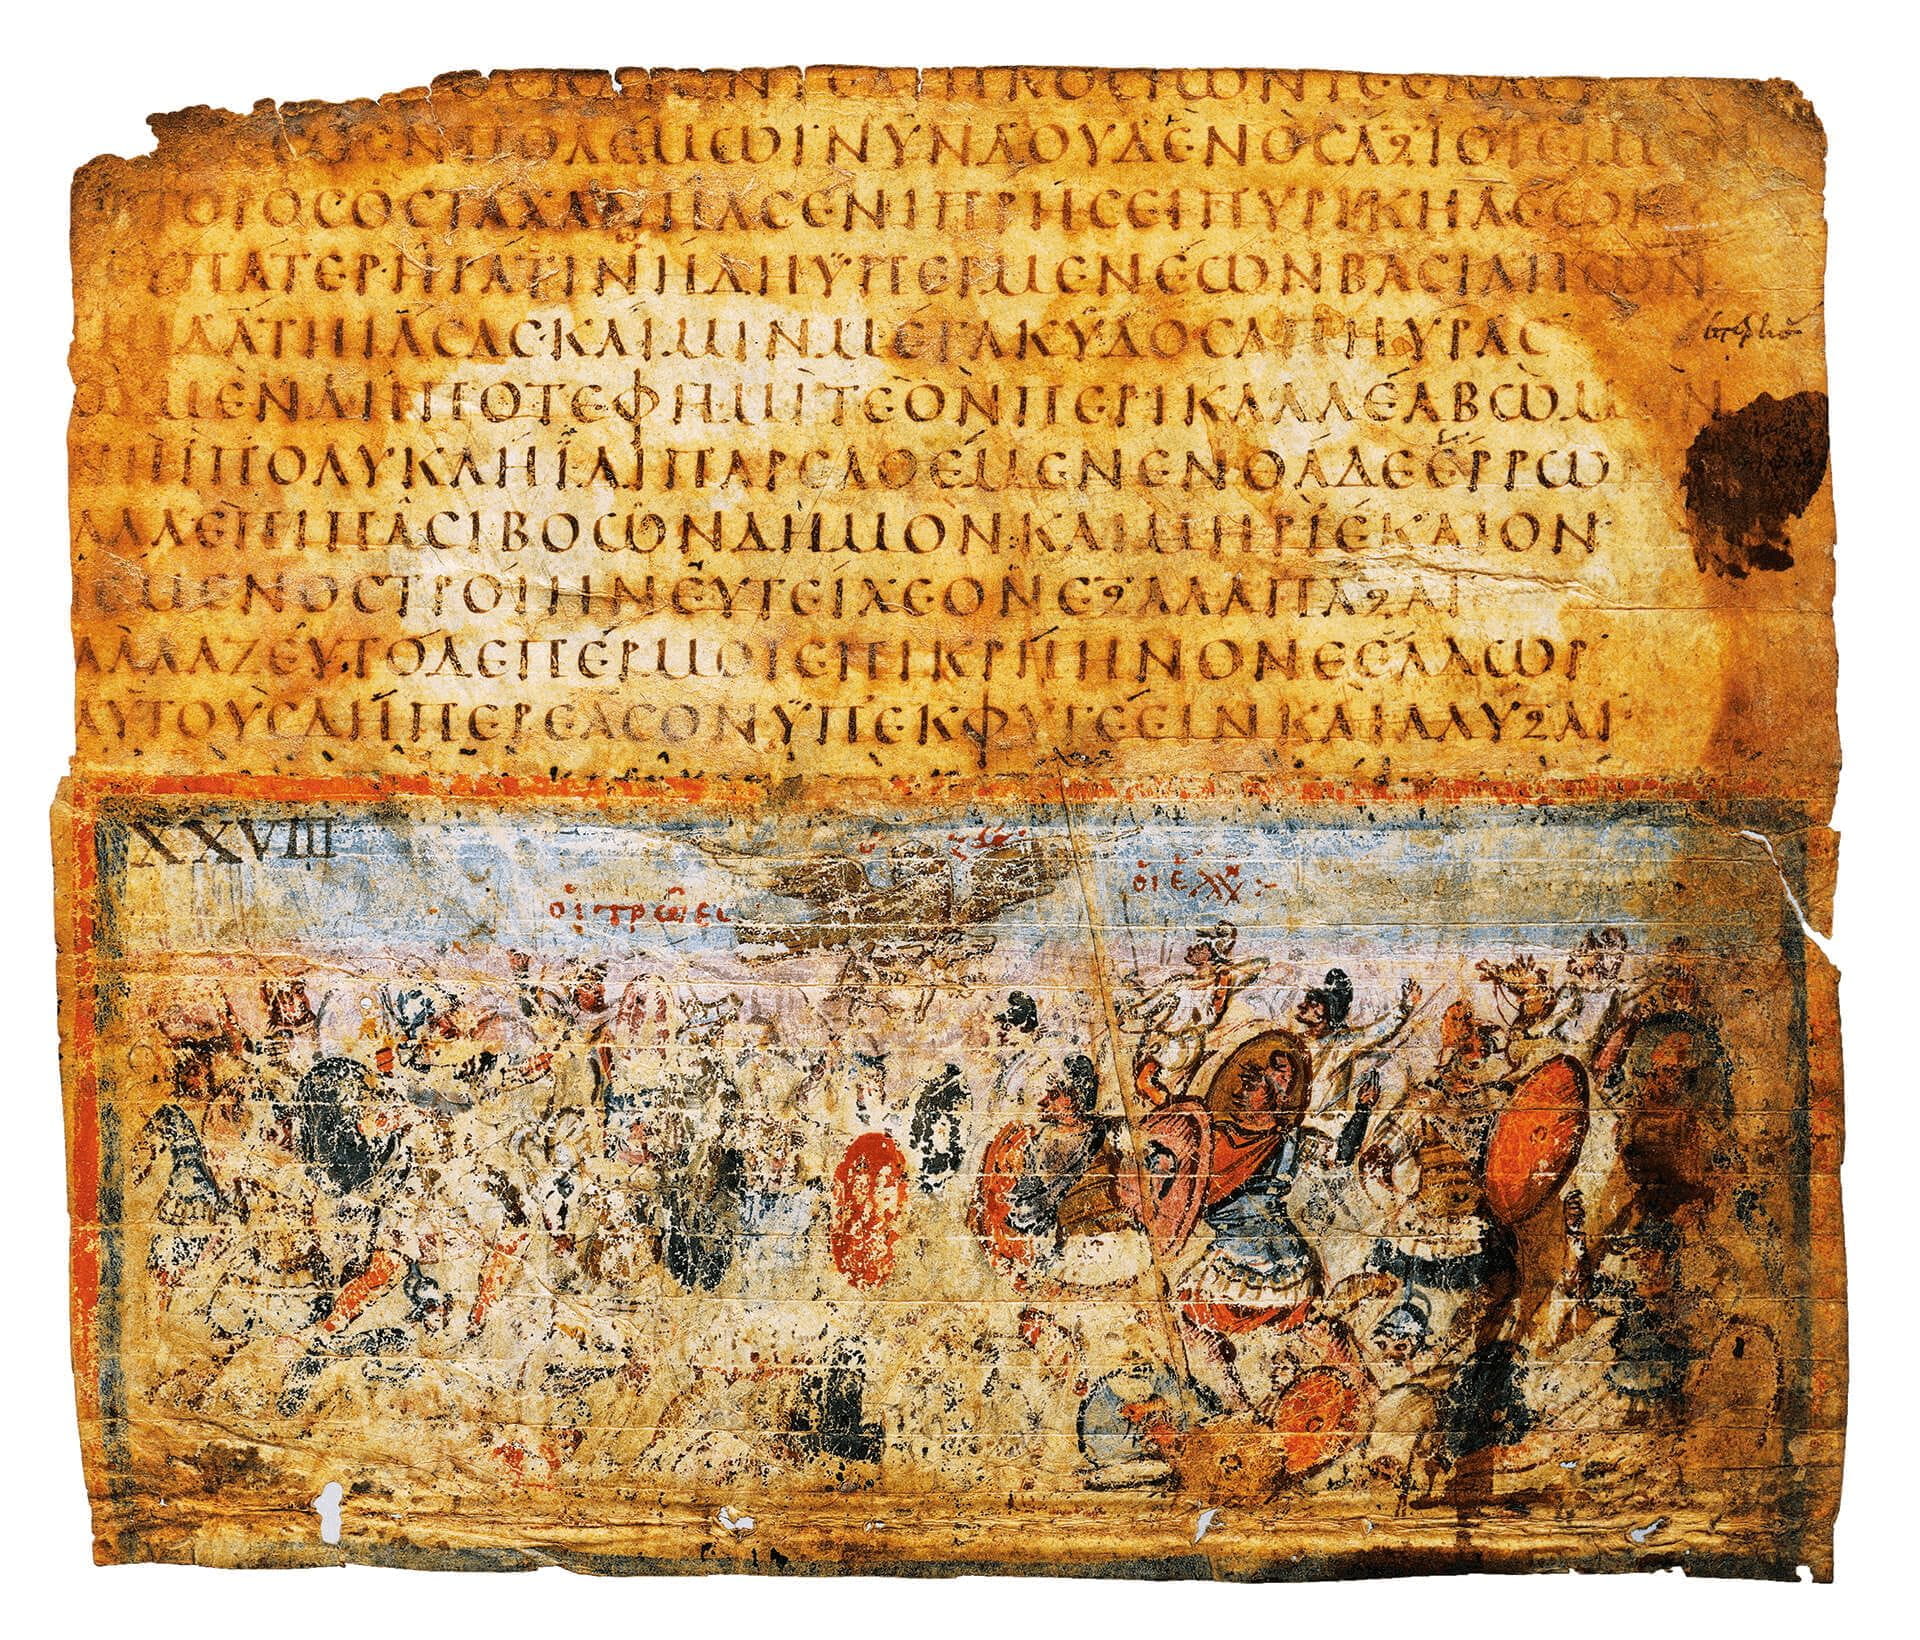 ΔΙΗΚΟCΙΩΝΤΕΕΚΑC
ΕΝΠΟΛΕΜΩΙΝΥΝΔΟΥΔΕΝΟCΑΞΙΟΙΕΙΜ
ΤΟΡΟCΟCΤΑΧΑΝΗΑCΕΝΙΠΡΗCΕΙΠΥΡΙΚΗΛΕΩΙ
ΖΕΥΠΑΤΕΡΗΡΑΤΙΝΗΔΗΫΠΕΡΜΕΝΕΩΝΒΑCΙΛΗΩΝ
ΤΗΙΔΑΤΗΙΑCΑCΚΑΙΜΙΝΜΕΓΑΚΥΔΟCΑΠΗΥΡΑC
ΟΥΜΕΝΔΗΠΟΤΕΦΗΜΙΤΕΟΝΠΕΡΙΚΑΛΛΕΑΒΩΜΟΝ
ΝΗΙΠΟΛΥΚΛΗΪΔΙΠΑΡΕΛΘΕΜΕΝΕΝΘΑΔΕΕΡΡΩ
ΑΛΛΕΠΙΠΑCΙΒΟΩΝΔΗΜΟΝΚΑΙΜΗΡΙΕΚΑΙΟΝ
ΙΕΜΕΝΟCΤΡΟΙΗΝΕΥΤΕΙΧΕΟΝΕΞΑΛΑΠΑΞΑΙ
ΑΛΛΑΖΕΥΤΟΔΕΠΕΡΜΟΙΕΠΙΚΡΗΗΝΟΝΕΕΛΔΩΡ
ΑΥΤΟΥCΔΗΠΕΡΕΑCΟΝΫΠΕΚΦΥΓΕΕΙΝΚΑΙΑΛΥΞΑΙ
XXVIII
οἱ τρῶες
οἱ ἑλλην